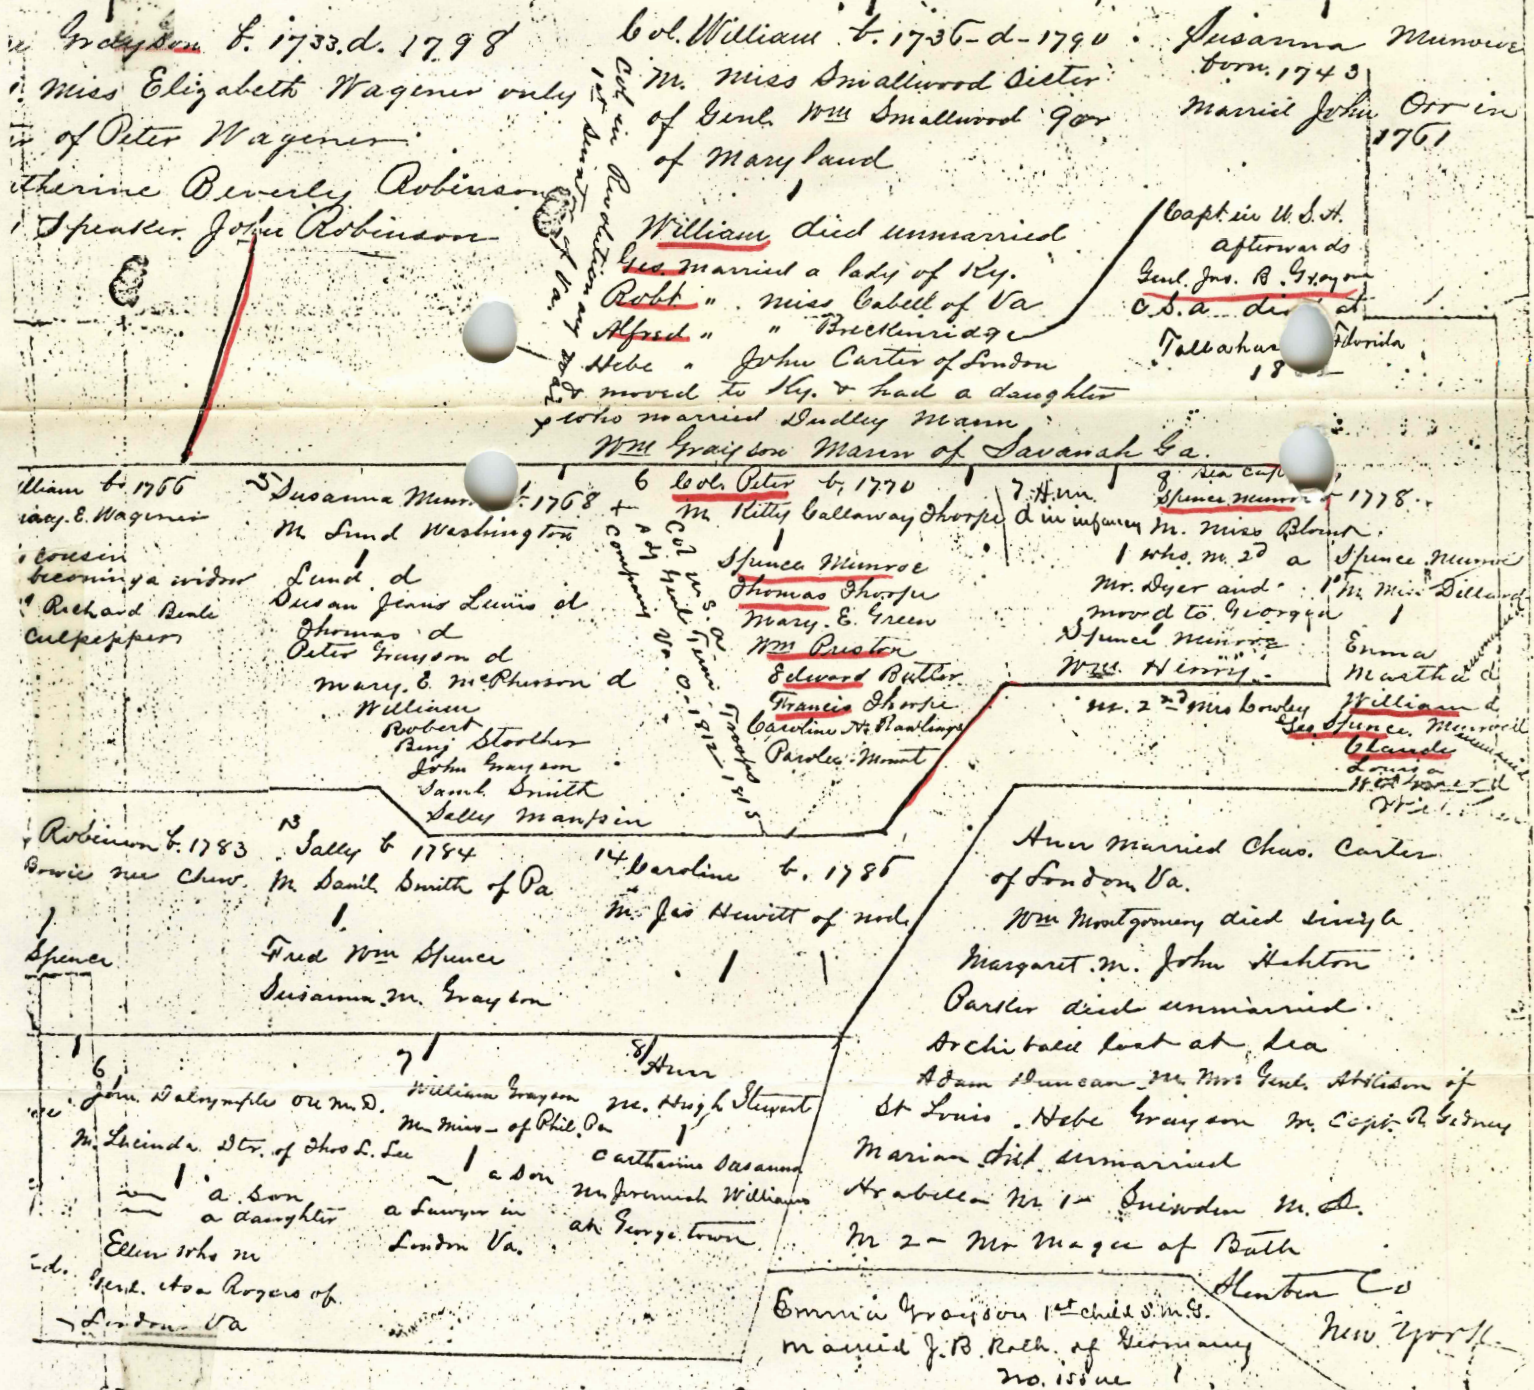 Grayson b. 1733. d. 1798
Miss Elizabeth Wagener only
of Peter Wagener
Beverly Robinson
Speaker John Robinson
Col. William b. 1736 - d - 1790
M. Miss Smallwood Sister
of Genl. Wm Smallwood Gov
of Maryland
Susanna Munroe
born. 1743
Married John Orr in
1761
Col in Revolutionary
William died unmarried
Geo. married a lady of Ky.
Robt " Miss Cabell of Va
Alfred " " Breckenridge
Hebe " John Carter of Loudon
& moved to Ky. & had a daughter
who married Dudley Mann
Wm Grayson Mann of Savanah Ga.
Capt in U.S.A.
afterwards
Genl. Jno. B. Grayson
C.S.A. died at
Florida
b. 1766
E. Wagener
cousin
becoming a widow
Richard Beale
Culpepper
5 Susanna 1768
M. Lund Washington
Lund d
Susan Jeans Lewis d
Thomas d
Peter Grayson d
Mary. E. McPherson d
William
Robert
Benj Strother
John Grayson
Saml. Smith
Sally Maupin
6 Col. Peter b. 1770
M. Kitty Callaway Thorpe
Spence Munroe
Thomas Thorpe
Mary. E. Green
Wm Preston
Edward Butler
Francis Thorpe
Caroline H. Rawlings
Mount
+ Col U.S.A.
Adj Genl
Company Va. 1812 - 1815
7 Ann
d in infancy
8 Sea Capt
Spence Munroe 1778
M. Miss Blount
who m. 2d a
Mr. Dyer and
moved to Georgia
Spence Munroe
Wm. Henry
m. 2nd Mrs Cowley
Spence Munroe
M. Miss Dillard
Emma
Martha d
William d
Geo. Spence Munroe d
Claude
Louisa
Robinson b. 1783
Bowie nee Chew.
Spencer
13 Sally b 1784
M. Danl. Smith of Pa
Fred Wm Spence
Susanna. M. Grayson
14 Caroline b. 1786
M. Jas Hewitt of
Ann married Chas. Carter
of Loudon Va.
Wm Montgomery died single
Margaret. M. John
Parker died unmarried
Archibald lost at Sea
Adam Duncan M. Mrs Genl. of
St Louis. Hebe Grayson M. Capt. R Gedney
Marian died unmarried
Arabella M 1st Snowden M.D.
M 2- Mr Magee of Bath
Steuben Co
New York
6
John Dalrymple Orr M.D.
M. Lucinda Dtr. of Thos L. Lee
a son
a daughter
Ellen who m
Genl. Asa Rogers of
Loudon Va
7
William Grayson
M Miss - of Phil. Pa
a son
a Lawyer in
Loudon Va.
8
Ann
M. Hugh Stewart
Catharine Susanna
M Jeremiah Williams
at Georgetown
Emma Grayson 1st child S.M.G.
Married J. B. Roth. of Germany
no issue